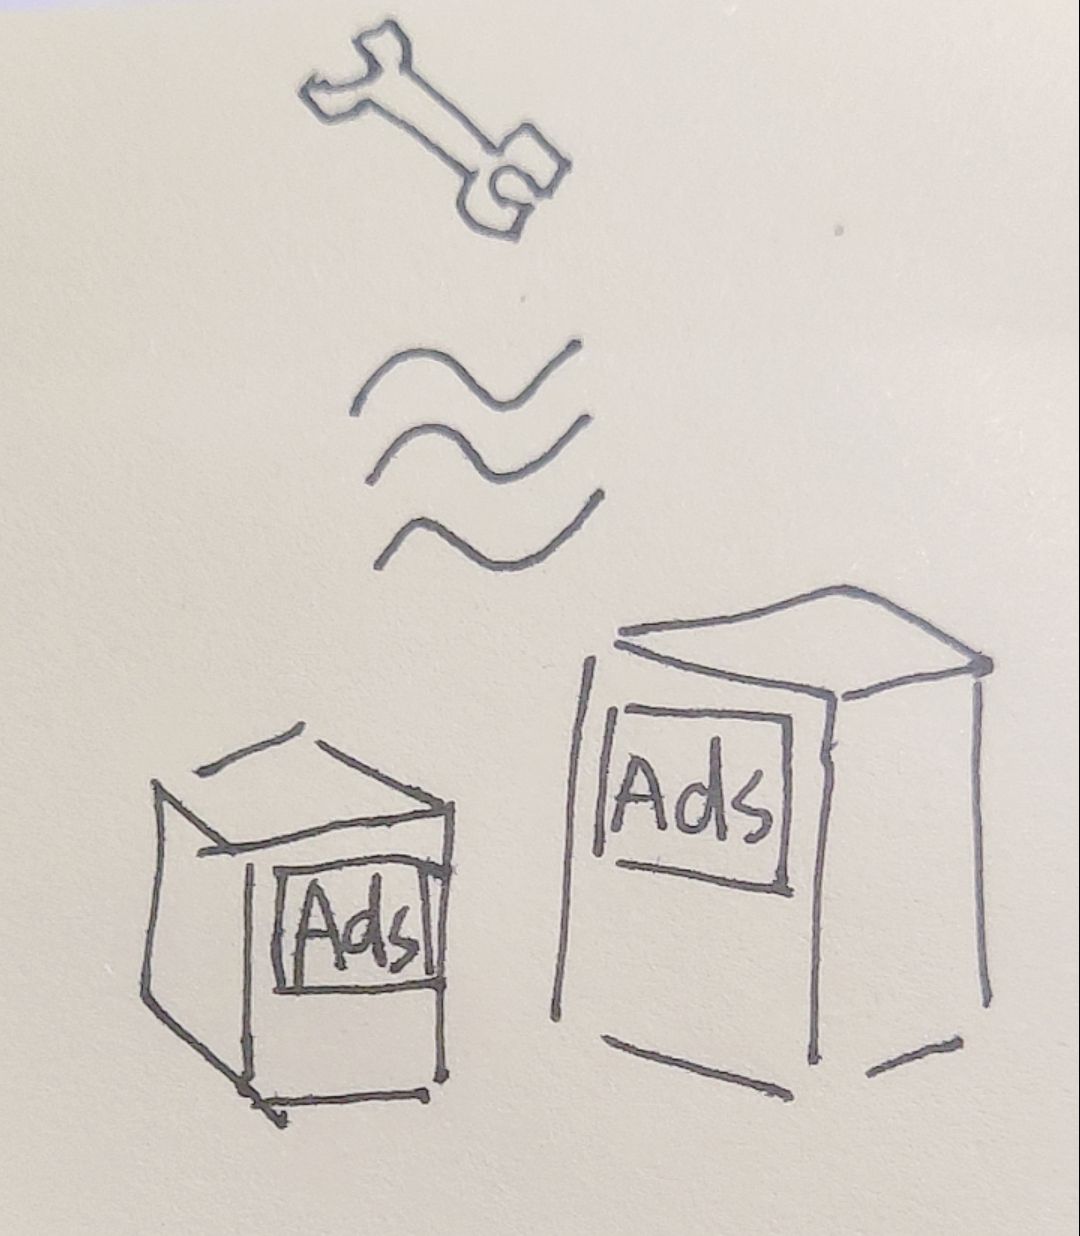 Ads
Ads